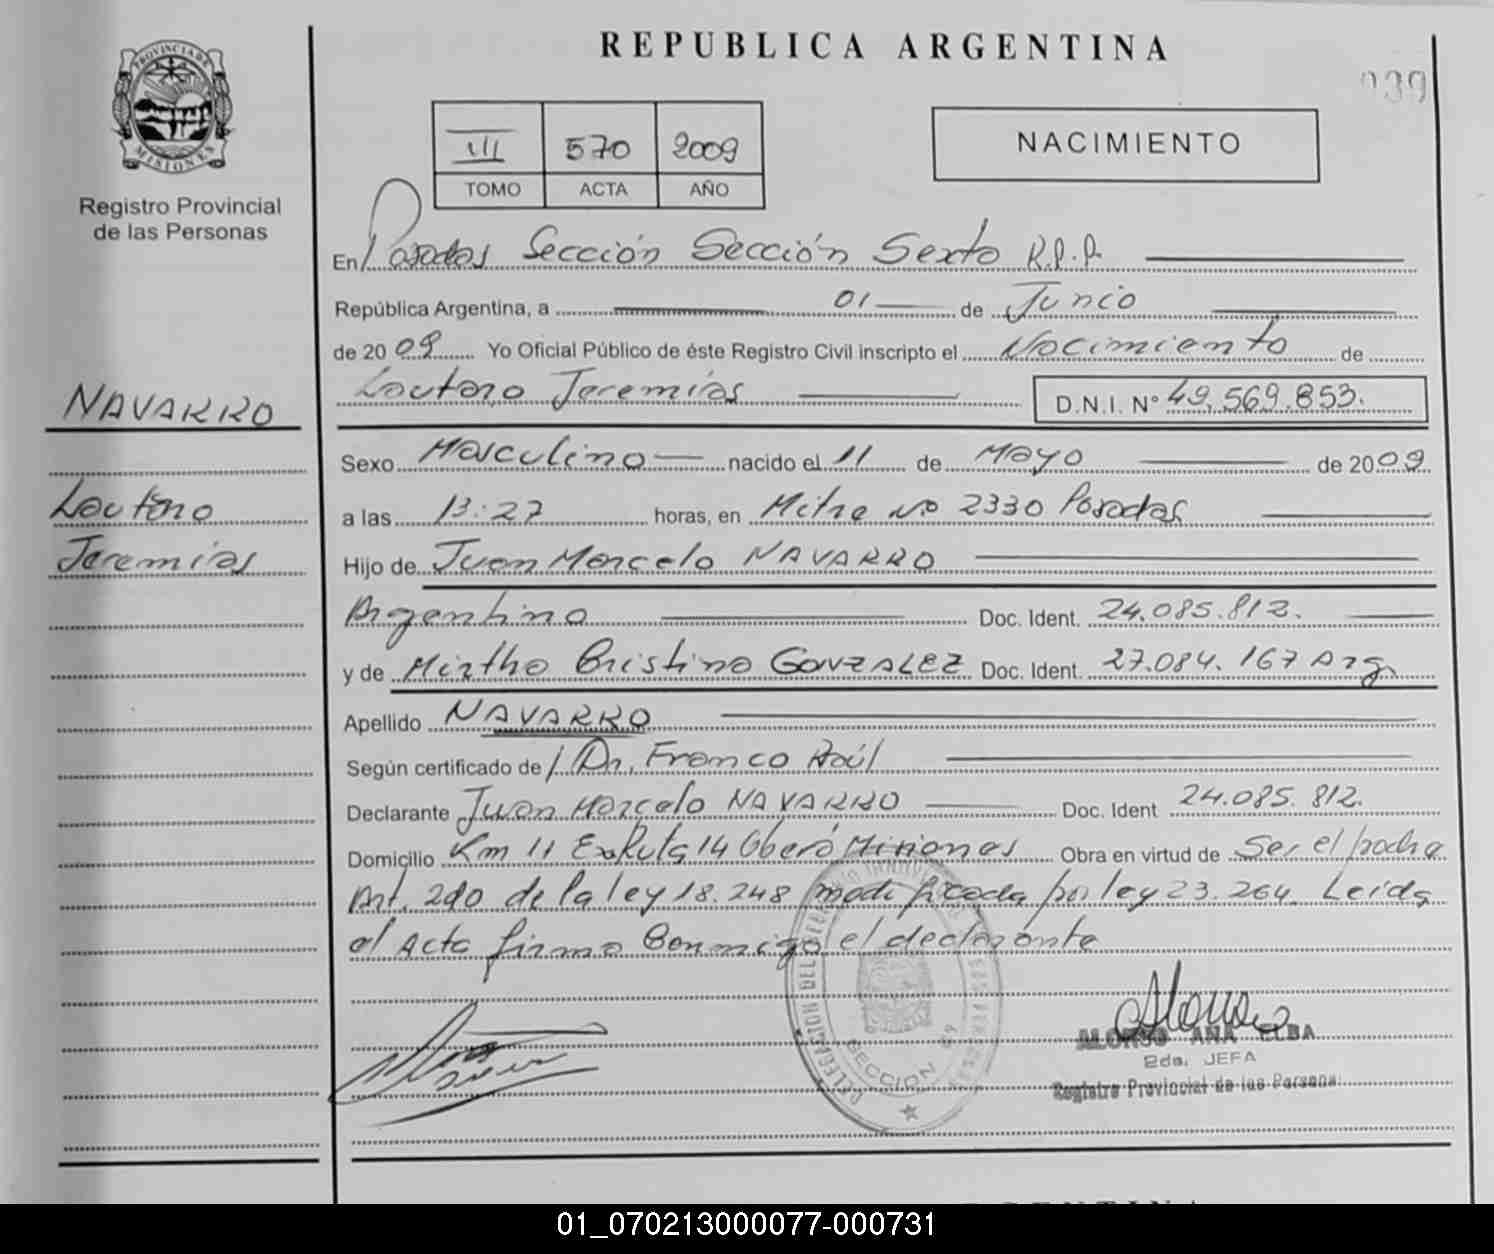 REPUBLICA ARGENTINA
039
PROVINCIA DE
MISIONES
Registro Provincial
de las Personas
III 570 2009
TOMO ACTA AÑO
NACIMIENTO
En Posadas Sección Sección Sexta R.P.P.
República Argentina, a 01 de Junio
de 2009 Yo Oficial Público de éste Registro Civil inscripto el Nacimiento de
Lautaro Jeremías D.N.I. N° 49.569.853.
NAVARRO
Lautaro
Jeremías
Sexo Masculino nacido el 11 de Mayo de 2009
a las 13:27 horas, en Mitre N° 2330 Posadas
Hijo de Juan Marcelo NAVARRO
Argentino Doc. Ident. 24.085.812.
y de Mirtha Cristina GONZALEZ Doc. Ident. 27.084.167 Arg.
Apellido NAVARRO
Según certificado de Dr. Franco Raúl
Declarante Juan Marcelo NAVARRO Doc. Ident 24.085.812.
Domicilio Km 11 Ex Ruta 14 Oberá Misiones Obra en virtud de Ser el padre
Art. 2do de la ley 18.248 modificada por ley 23.264. Leida
el Acta firma Conmigo el declarante
DELEGACION DEL
SECCION
ALONSO ANA ELBA
2da. JEFA
Registro Provincial de las Personas
01_070213000077-000731